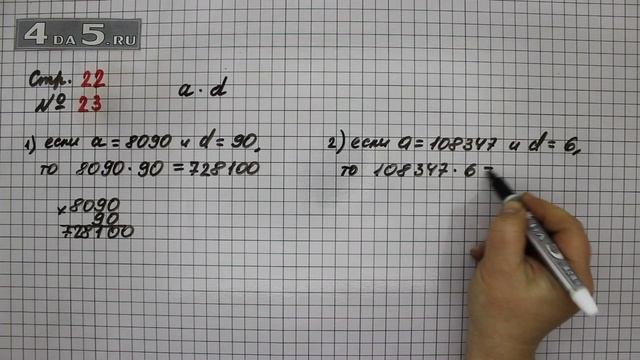 4DA5.RU
Стр. 22
№ 23
a · d
1) если a = 8090 и d = 90,
то 8090 · 90 = 728100
× 8090
90
728100
2) если a = 108347 и d = 6,
то 108347 · 6 =